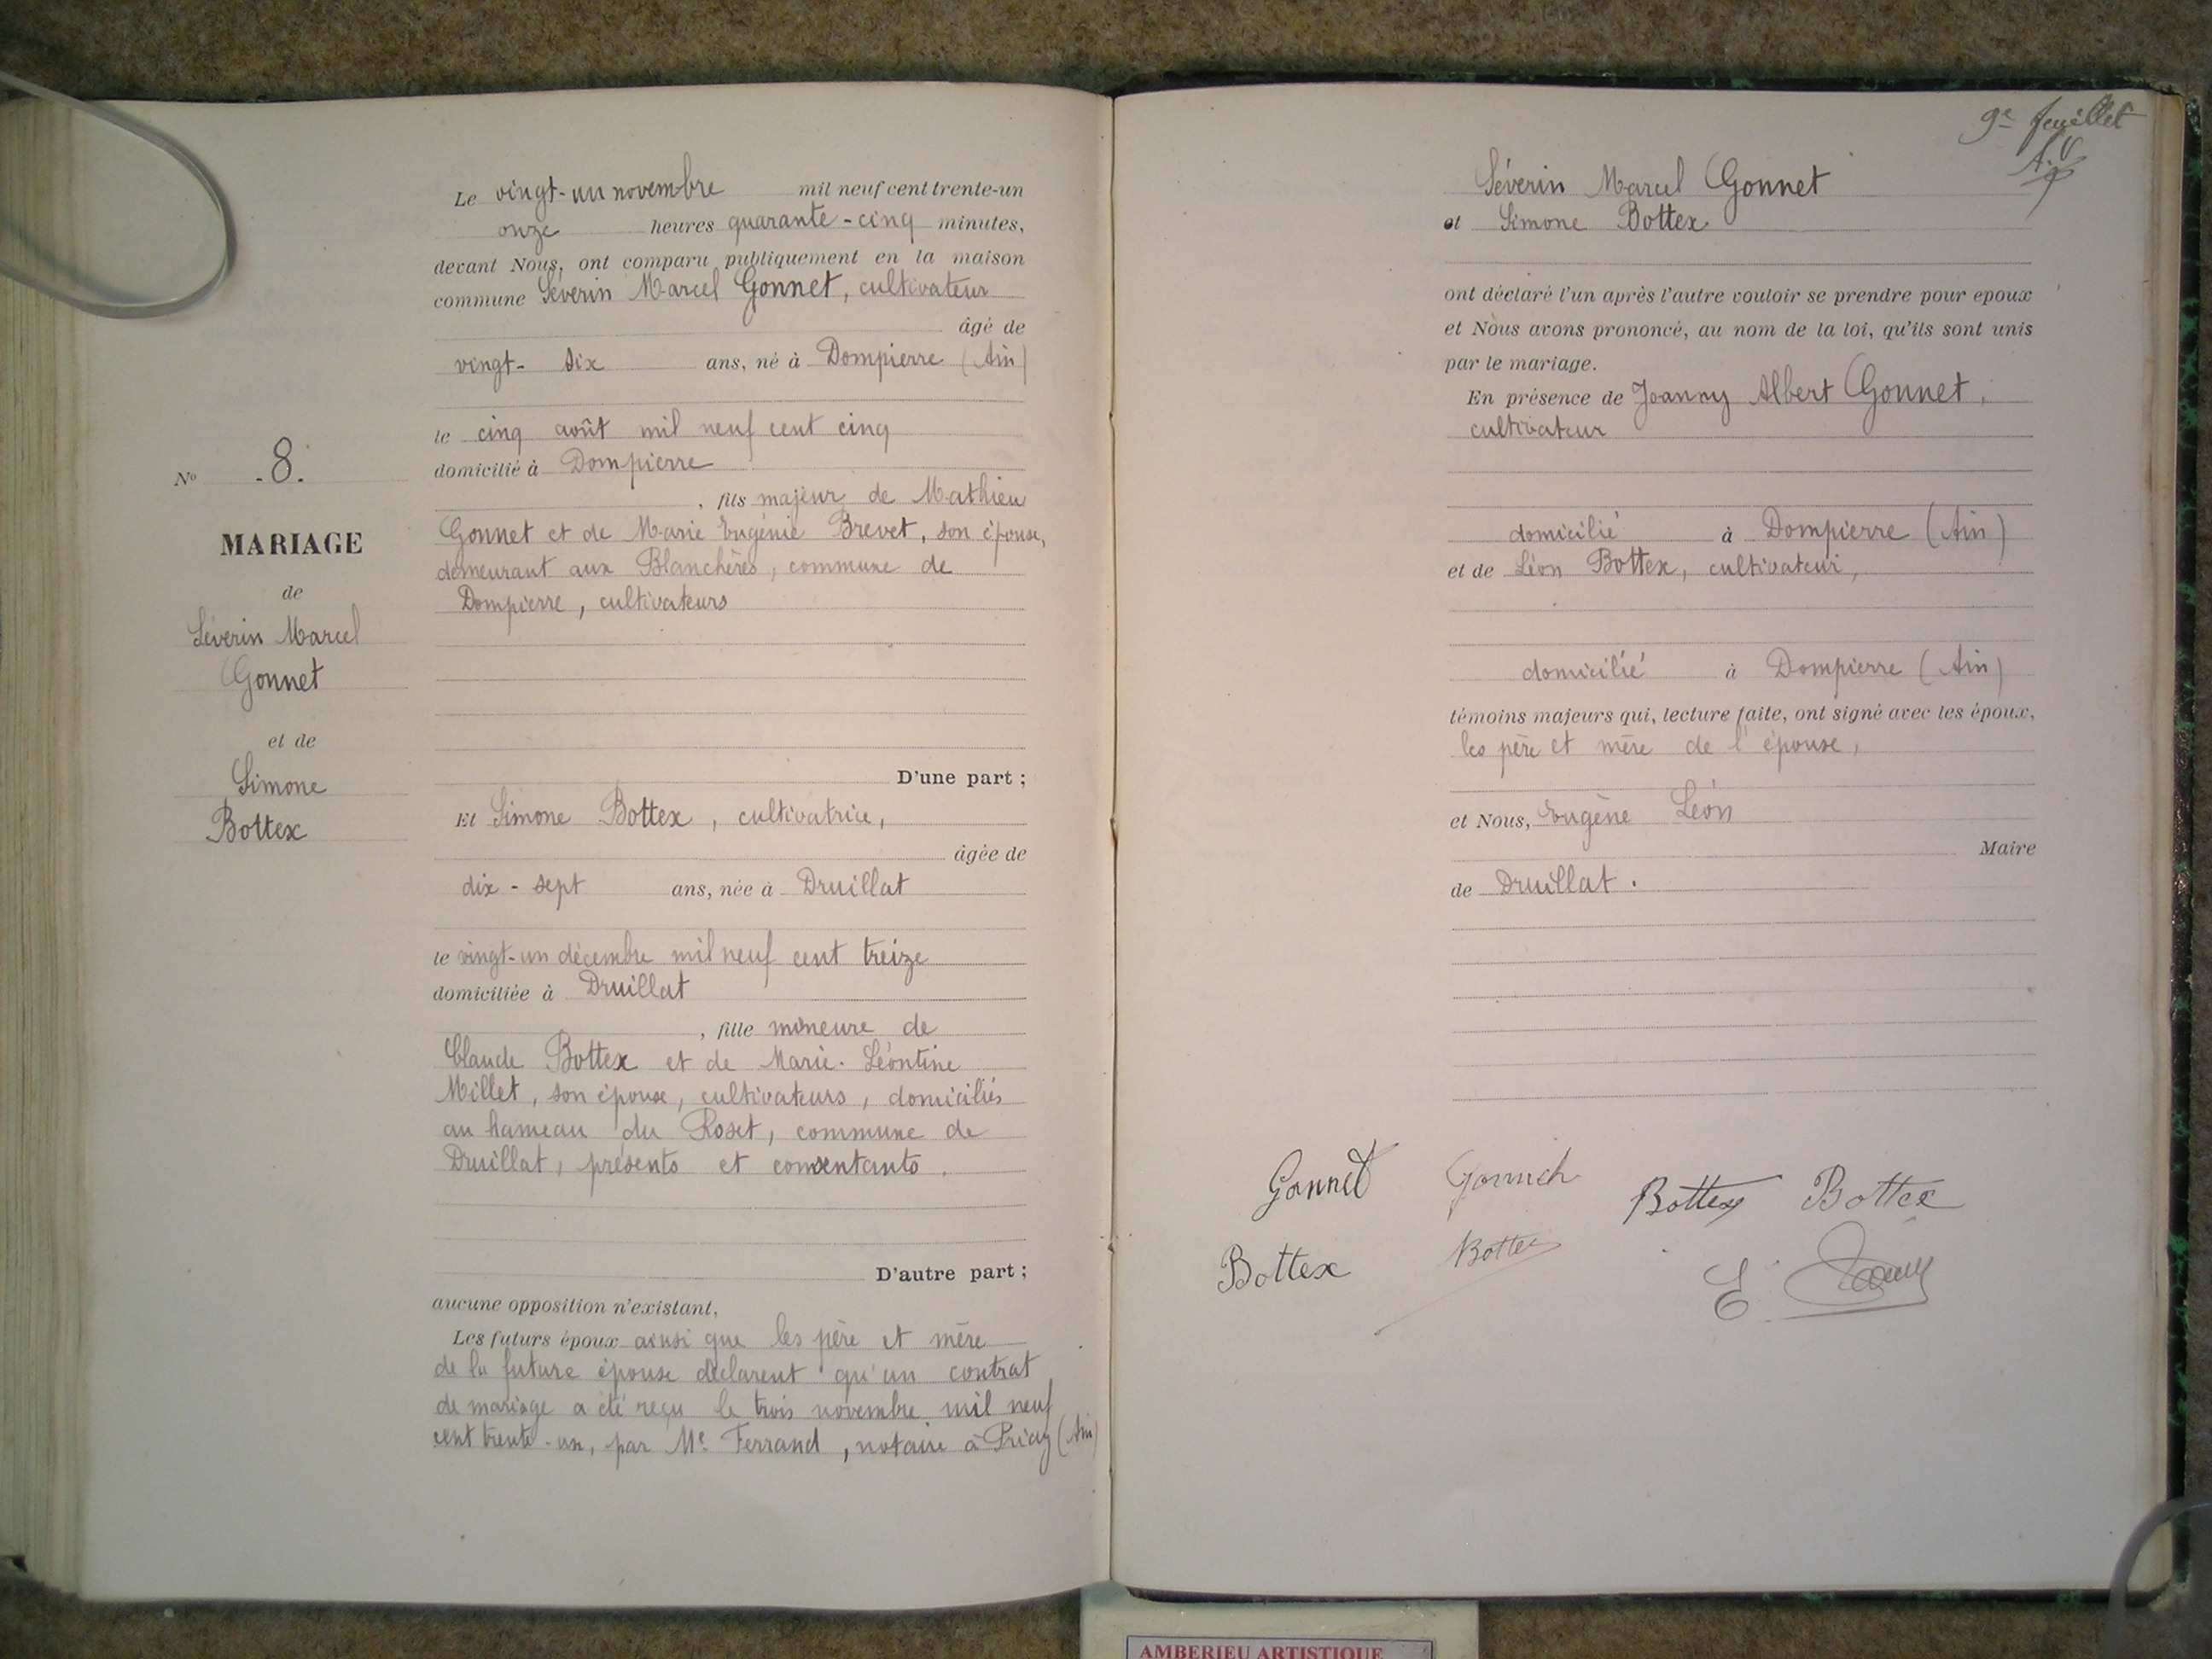 Le vingt-un novembre mil neuf cent trente-un
onze heures quarante-cinq minutes,
devant Nous, ont comparu publiquement en la maison
commune Séverin Marcel Gonnet, cultivateur
âgé de
vingt-six ans, né à Dompierre (Ain)
le cinq août mil neuf cent cinq
domicilié à Dompierre
, fils majeur de Mathieu
Gonnet et de Marie Eugénie Brevet, son épouse,
demeurant aux Blanchères, commune de
Dompierre, cultivateurs
D'une part ;
Et Simone Bottex, cultivatrice,
âgée de
dix-sept ans, née à Druillat
le vingt-un décembre mil neuf cent treize
domiciliée à Druillat
, fille mineure de
Claude Bottex et de Marie-Léontine
Millet, son épouse, cultivateurs, domiciliés
au hameau du Roset, commune de
Druillat, présents et consentants.
D'autre part ;
aucune opposition n'existant,
Les futurs époux ainsi que les père et mère
de la future épouse déclarent qu'un contrat
de mariage a été reçu le trois novembre mil neuf
cent trente-un, par Me Ferrand, notaire à Priay (Ain)
No 8.
MARIAGE
de
Séverin Marcel
Gonnet
et de
Simone
Bottex
9e feuillet
Séverin Marcel Gonnet
et Simone Bottex
ont déclaré l'un après l'autre vouloir se prendre pour epoux
et Nous avons prononcé, au nom de la loi, qu'ils sont unis
par le mariage.
En présence de Joanny Albert Gonnet,
cultivateur
domicilié à Dompierre (Ain)
et de Léon Bottex, cultivateur,
domicilié à Dompierre (Ain)
témoins majeurs qui, lecture faite, ont signé avec les époux,
les père et mère de l'épouse,
et Nous, Eugène Léon
Maire
de Druillat.
Gonnet Bottex Bottex
Bottex Bottex E.
AMBERIEU ARTISTIQUE